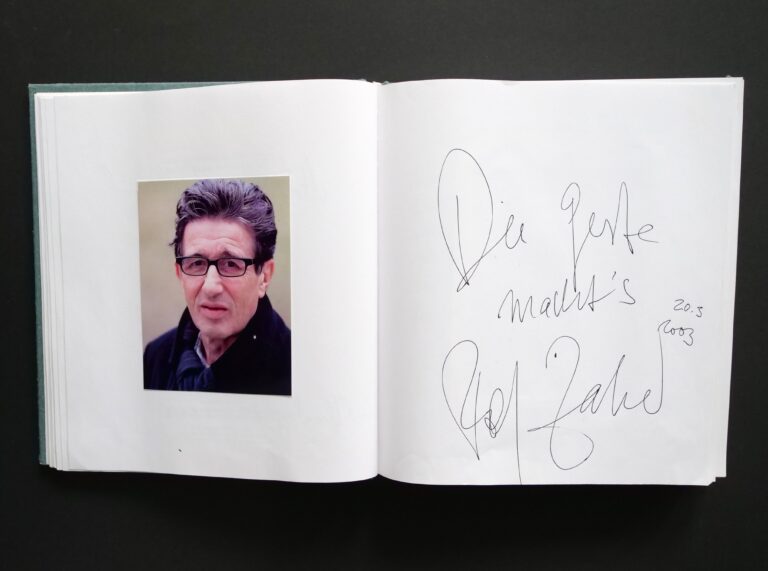 Die Geste
macht's
20.3
2003
Rolf Zabel